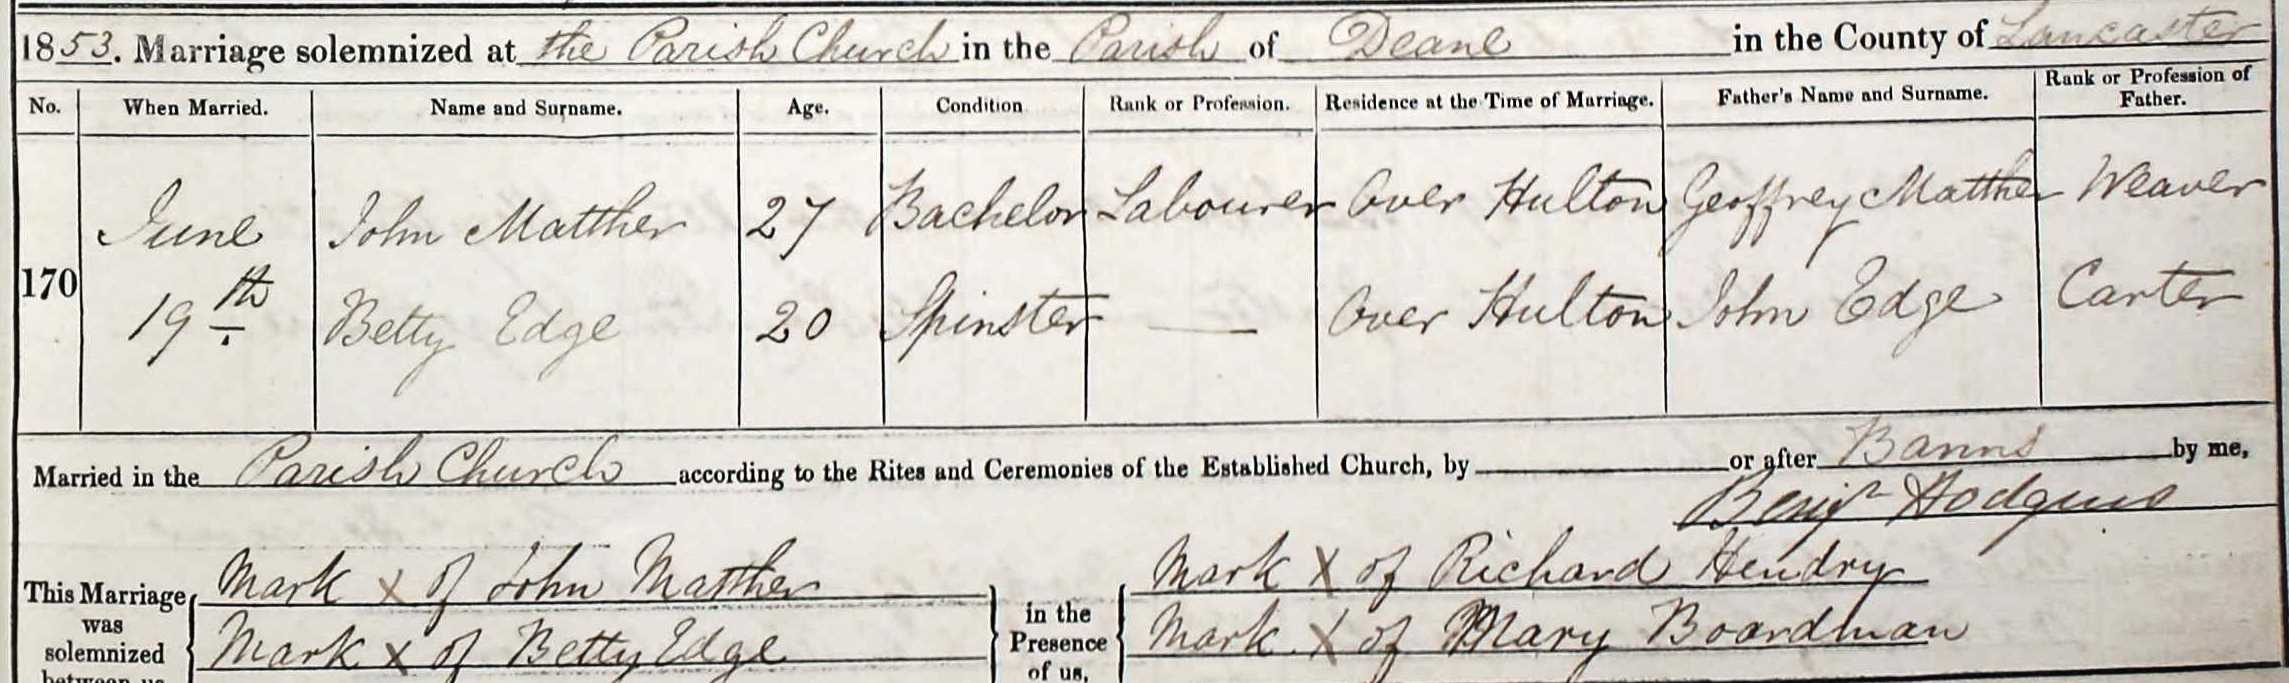 1853. Marriage solemnized at the Parish Church in the Parish of Deane in the County of Lancaster
No. When Married. Name and Surname. Age. Condition Rank or Profession. Residence at the Time of Marriage. Father's Name and Surname. Rank or Profession of Father.
June John Matther 27 Bachelor Labourer Over Hulton Geoffrey Matther Weaver
170 19th Betty Edge 20 Spinster — Over Hulton John Edge Carter
Married in the Parish Church according to the Rites and Ceremonies of the Established Church, by or after Banns by me,
Benjn Hodgins
This Marriage Mark X of John Matther in the Mark X of Richard Hendry
was
solemnized Mark X of Betty Edge Presence Mark X of Mary Boardman
between us of us,